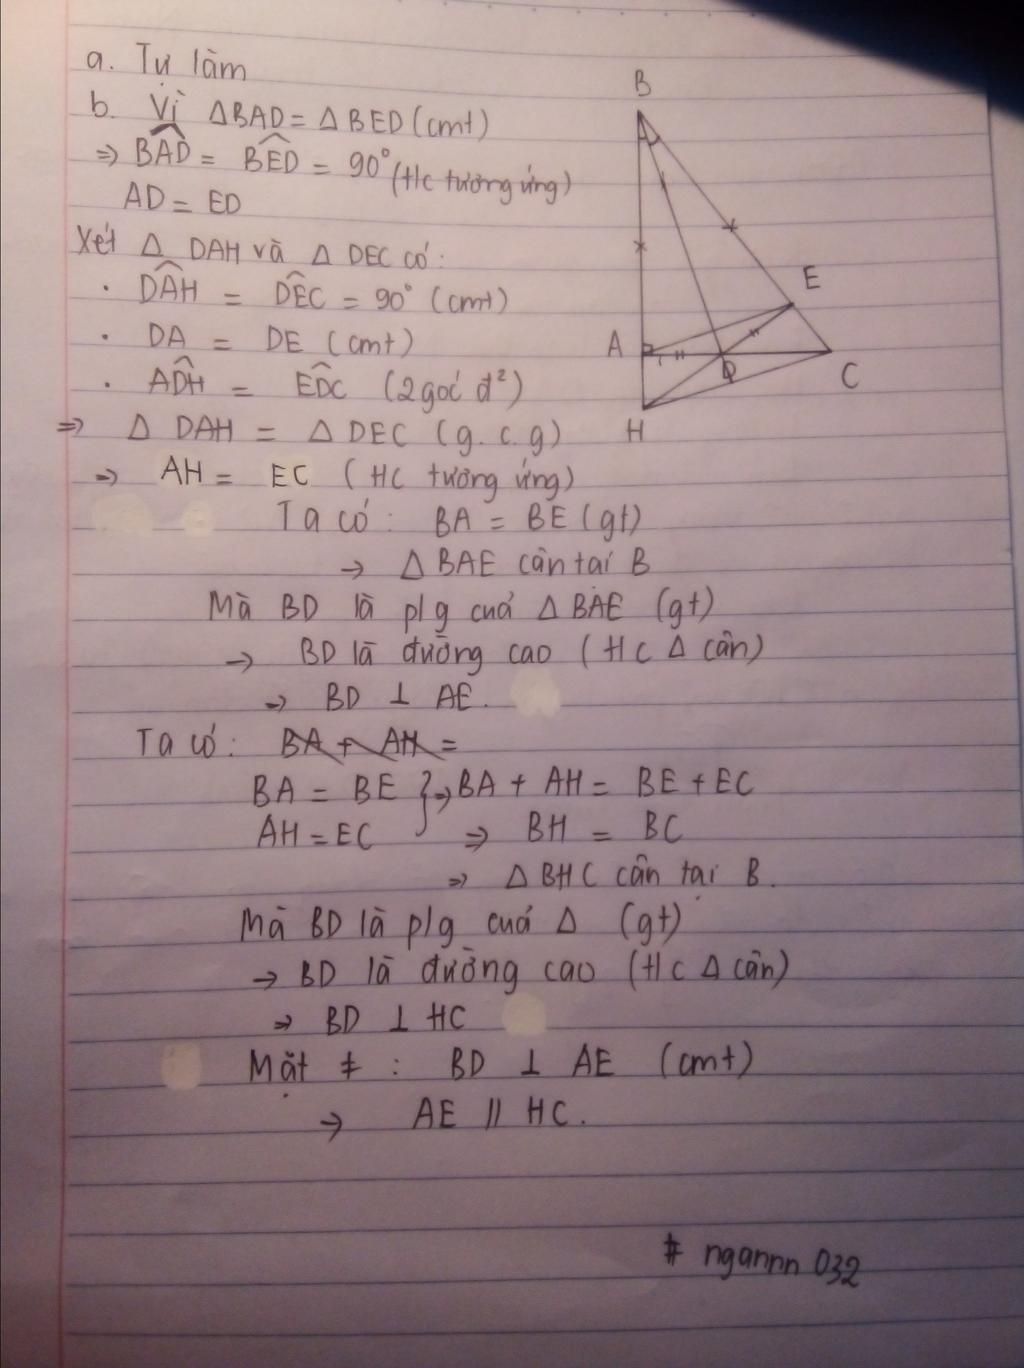 a. Tự làm
b. Vì ΔBAD = ΔBED (cmt)
⇒ BAD̂ = BED̂ = 90° (Hc tương ứng)
AD = ED
Xét Δ DAH và Δ DEC có:
· DAĤ = DEĈ = 90° (cmt)
· DA = DE (cmt)
· ADĤ = EDĈ (2 góc đ²)
⇒ Δ DAH = Δ DEC (g.c.g)
⇒ AH = EC (HC tương ứng)
Ta có: BA = BE (gt)
→ Δ BAE cân tại B
Mà BD là p/g cuả Δ BAE (gt)
→ BD là đường cao (HC Δ cân)
⇒ BD ⊥ AE.
Ta có: BA + AH =
BA = BE } ⇒ BA + AH = BE + EC
AH = EC ⇒ BH = BC
⇒ Δ BHC cân tại B.
Mà BD là p/g cuả Δ (gt)
→ BD là đường cao (Hc Δ cân)
⇒ BD ⊥ HC
Mặt ≠ : BD ⊥ AE (cmt)
→ AE // HC.
# ngannn 032
B
E
A
D
C
H